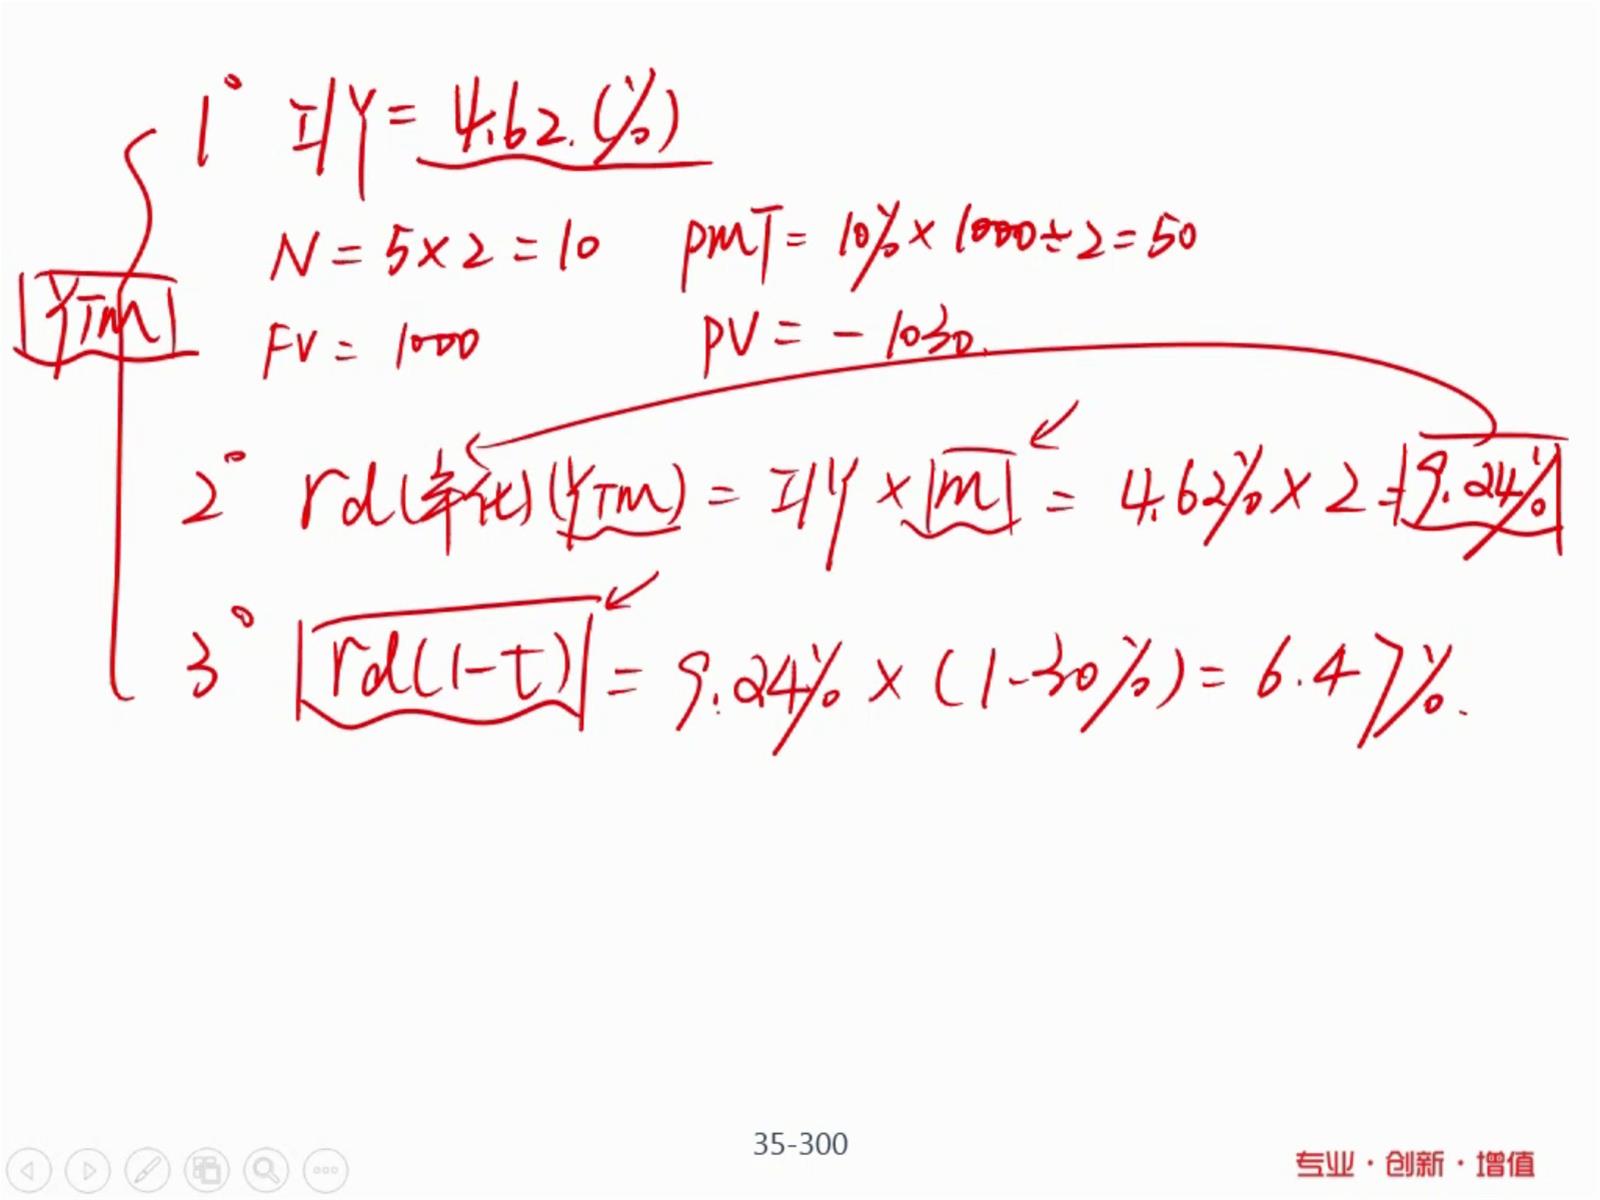 1° I/Y = 4.62.(%)
N = 5×2 = 10 PMT = 10%×1000÷2 = 50
YTM
FV = 1000 PV = -1030.
2° rd(年化)(YTM) = I/Y × m = 4.62%×2 = 9.24%
3° rd(1-t) = 9.24%×(1-30%) = 6.47%.
35-300
专业·创新·增值